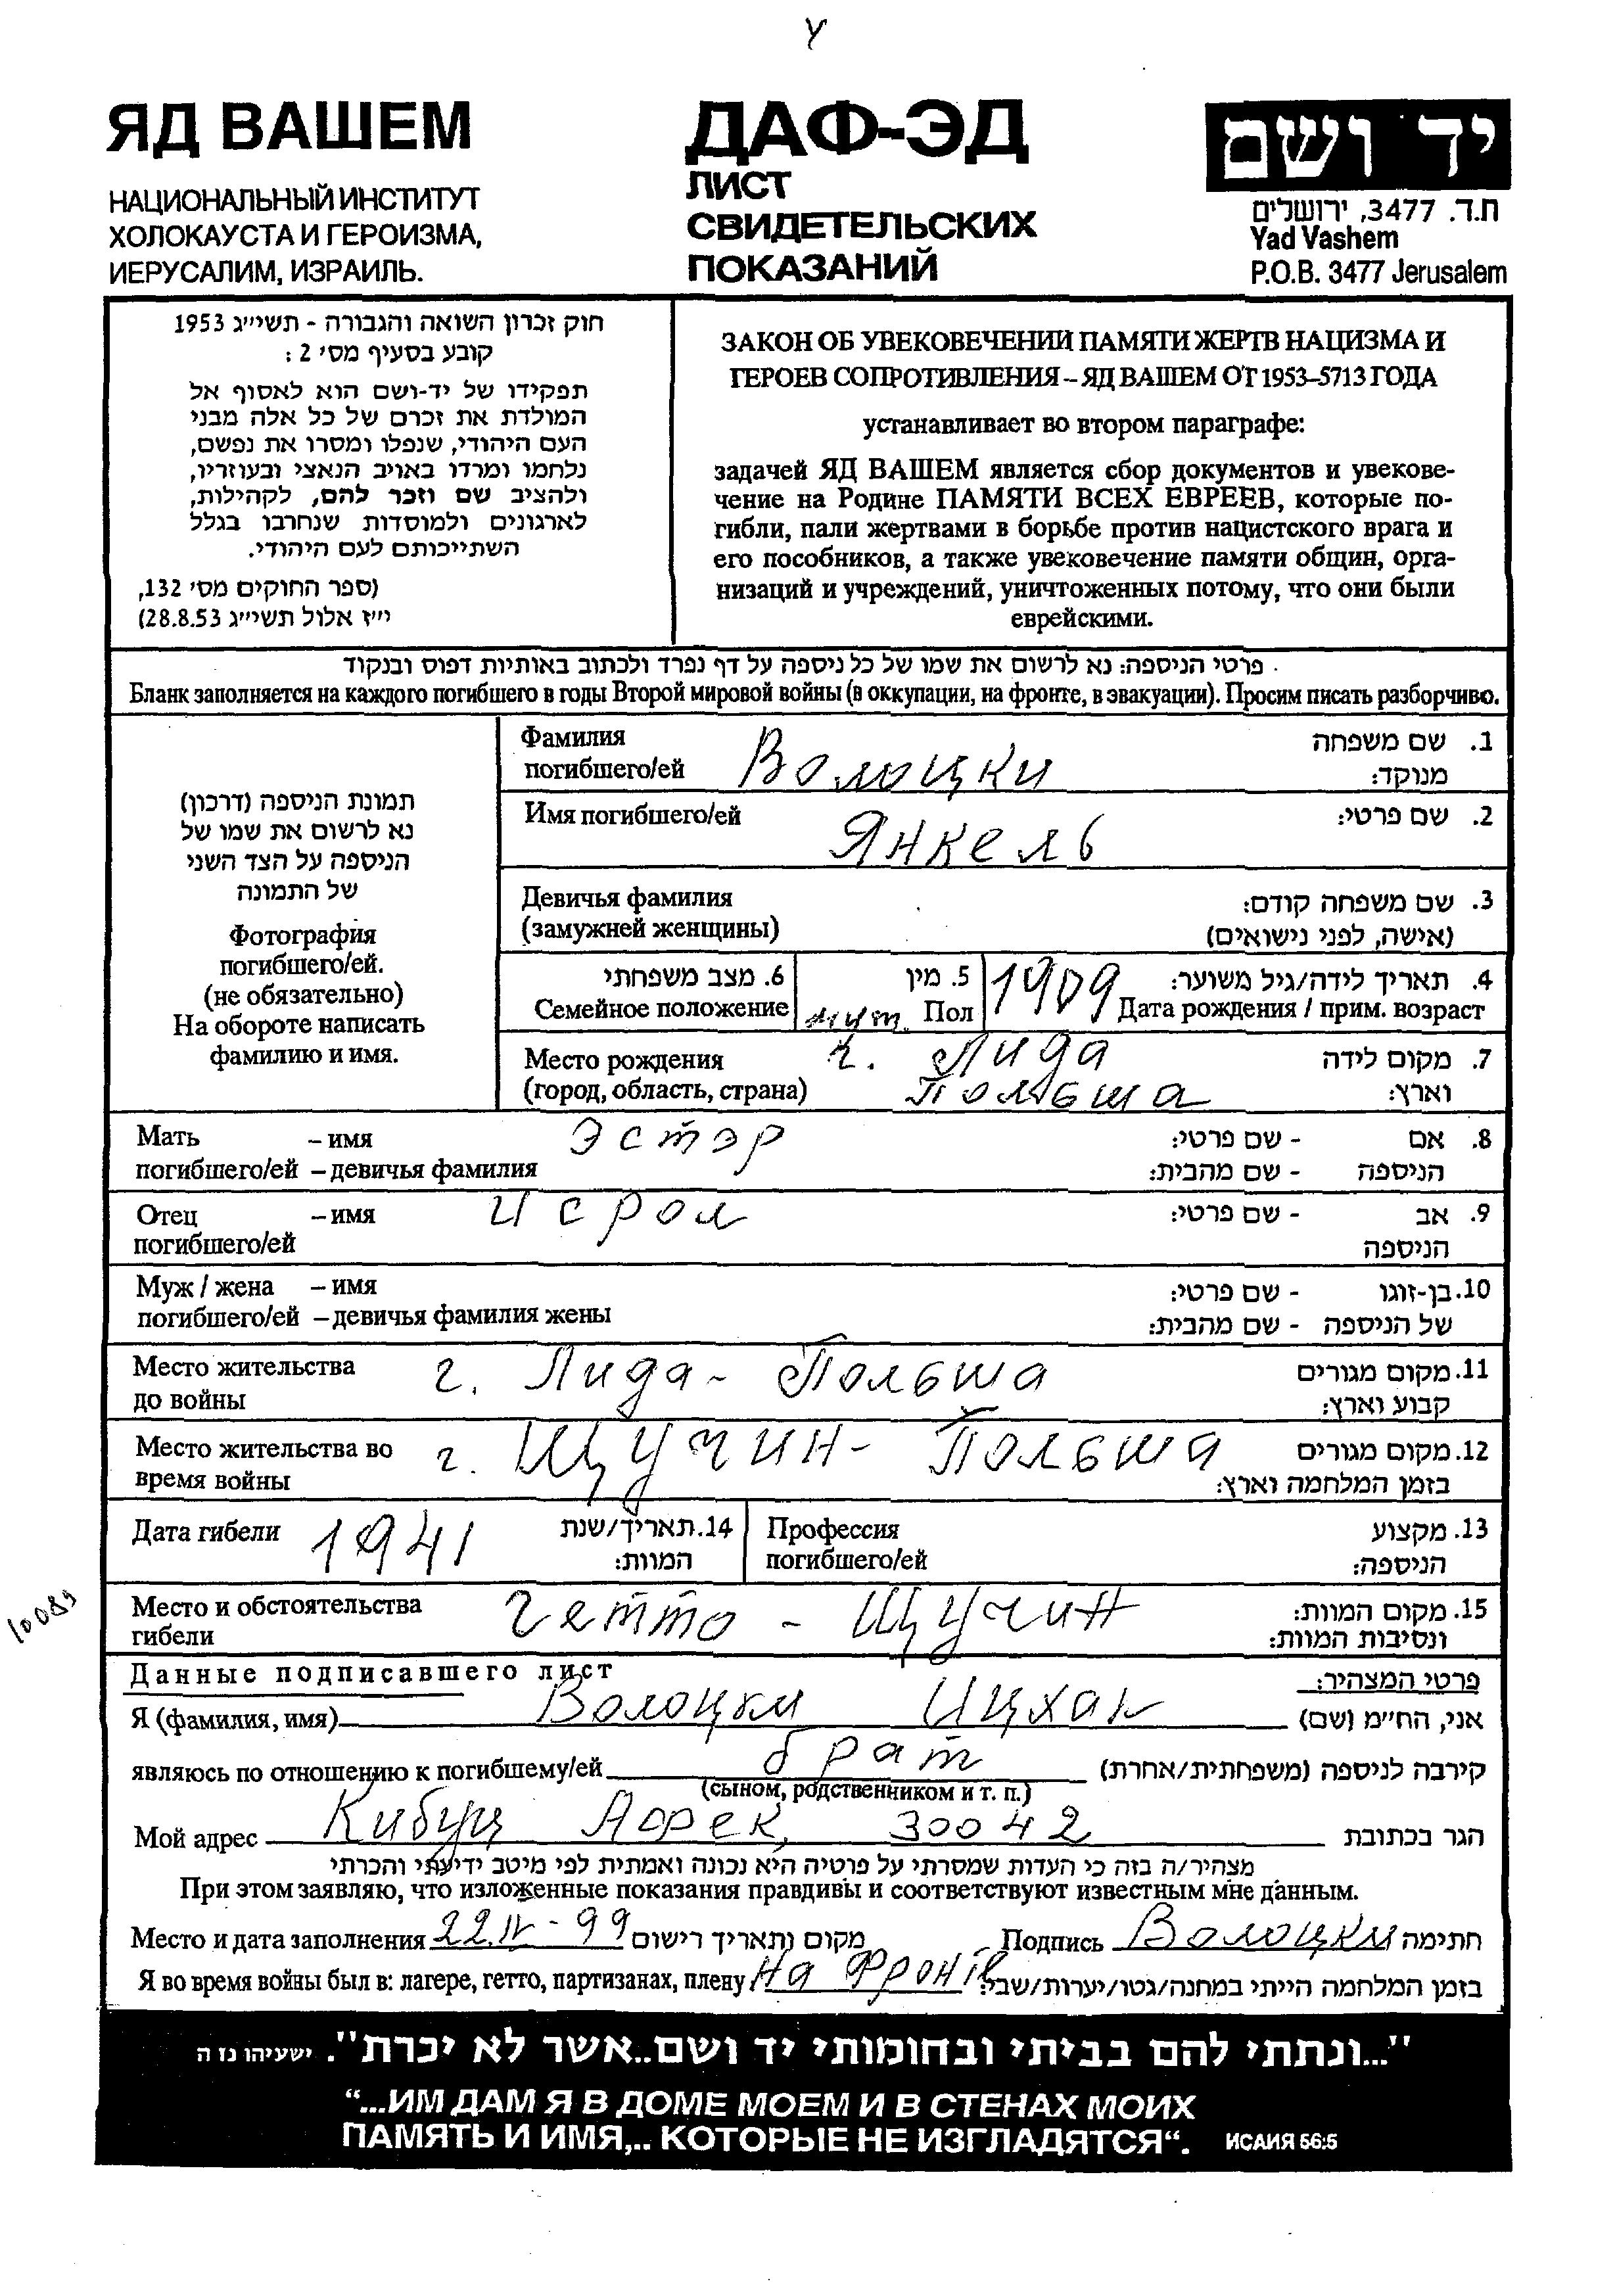 ЯД ВАШЕМ
НАЦИОНАЛЬНЫЙ ИНСТИТУТ
ХОЛОКАУСТА И ГЕРОИЗМА,
ИЕРУСАЛИМ, ИЗРАИЛЬ.
ДАФ-ЭД
ЛИСТ
СВИДЕТЕЛЬСКИХ
ПОКАЗАНИЙ
יד ושם
ת.ד. 3477, ירושלים
Yad Vashem
P.O.B. 3477 Jerusalem
חוק זכרון השואה והגבורה - תשי״ג 1953
קובע בסעיף מס׳ 2 :
תפקידו של יד-ושם הוא לאסוף אל
המולדת את זכרם של כל אלה מבני
העם היהודי, שנפלו ומסרו את נפשם,
נלחמו ומרדו באויב הנאצי ובעוזריו,
ולהציב שם וזכר להם, לקהילות,
לארגונים ולמוסדות שנחרבו בגלל
השתייכותם לעם היהודי.
(ספר החוקים מס׳ 132,
י״ז אלול תשי״ג 28.8.53)
ЗАКОН ОБ УВЕКОВЕЧЕНИИ ПАМЯТИ ЖЕРТВ НАЦИЗМА И
ГЕРОЕВ СОПРОТИВЛЕНИЯ – ЯД ВАШЕМ ОТ 1953–5713 ГОДА
устанавливает во втором параграфе:
задачей ЯД ВАШЕМ является сбор документов и увекове-
чение на Родине ПАМЯТИ ВСЕХ ЕВРЕЕВ, которые по-
гибли, пали жертвами в борьбе против нацистского врага и
его пособников, а также увековечение памяти общин, орга-
низаций и учреждений, уничтоженных потому, что они были
еврейскими.
פרטי הניספה: נא לרשום את שמו של כל ניספה על דף נפרד ולכתוב באותיות דפוס ובנקוד
Бланк заполняется на каждого погибшего в годы Второй мировой войны (в оккупации, на фронте, в эвакуации). Просим писать разборчиво.
תמונת הניספה (דרכון)
נא לרשום את שמו של
הניספה על הצד השני
של התמונה
Фотография
погибшего/ей.
(не обязательно)
На обороте написать
фамилию и имя.
Фамилия Волоцки 1. שם משפחה
погибшего/ей מנוקד:
Имя погибшего/ей Янкель 2. שם פרטי:
Девичья фамилия 3. שם משפחה קודם:
(замужней женщины) (אישה, לפני נישואים)
6. מצב משפחתי 5. מין 1909 4. תאריך לידה/גיל משוער:
Семейное положение муж. Пол Дата рождения / прим. возраст
Место рождения г. Лида 7. מקום לידה
(город, область, страна) Польша וארץ:
Мать – имя Эстэр 8. אם - שם פרטי:
погибшего/ей – девичья фамилия הניספה - שם מהבית:
Отец – имя Исрол 9. אב - שם פרטי:
погибшего/ей הניספה
Муж / жена – имя 10. בן-זוגו - שם פרטי:
погибшего/ей – девичья фамилия жены של הניספה - שם מהבית:
Место жительства г. Лида - Польша 11. מקום מגורים
до войны קבוע וארץ:
Место жительства во г. Щучин - Польша 12. מקום מגורים
время войны בזמן המלחמה וארץ:
Дата гибели 1941 14. תאריך/שנת Профессия 13. מקצוע
המוות: погибшего/ей הניספה:
Место и обстоятельства гетто - Щучин 15. מקום המוות:
гибели ונסיבות המוות:
Данные подписавшего лист פרטי המצהיר:
Я (фамилия, имя) Волоцки Ицхак אני, הח״מ (שם)
являюсь по отношению к погибшему/ей брат קירבה לניספה (משפחתית/אחרת)
(сыном, родственником и т. п.)
Мой адрес Кибуц Афек, 30042 הגר בכתובת
מצהיר/ה בזה כי העדות שמסרתי על פרטיה היא נכונה ואמתית לפי מיטב ידיעתי והכרתי
При этом заявляю, что изложенные показания правдивы и соответствуют известным мне данным.
Место и дата заполнения 22.IV-99 מקום ותאריך רישום Подпись Волоцки חתימה
Я во время войны был в: лагере, гетто, партизанах, плену На фронте בזמן המלחמה הייתי במחנה/גטו/יערות/שבי:
10089
"...ונתתי להם בביתי ובחומותי יד ושם..אשר לא יכרת". ישעיהו נז ה
“...ИМ ДАМ Я В ДОМЕ МОЕМ И В СТЕНАХ МОИХ
ПАМЯТЬ И ИМЯ,.. КОТОРЫЕ НЕ ИЗГЛАДЯТСЯ“. ИСАИЯ 56:5